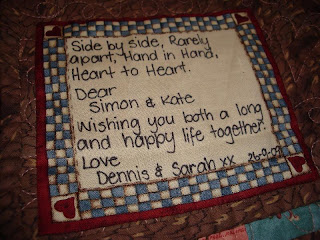 Side by side, Rarely
apart, Hand in Hand,
Heart to Heart.
Dear
Simon & Kate
Wishing you both a long
and happy life together.
Love
Dennis & Sarah xx 26-9-09